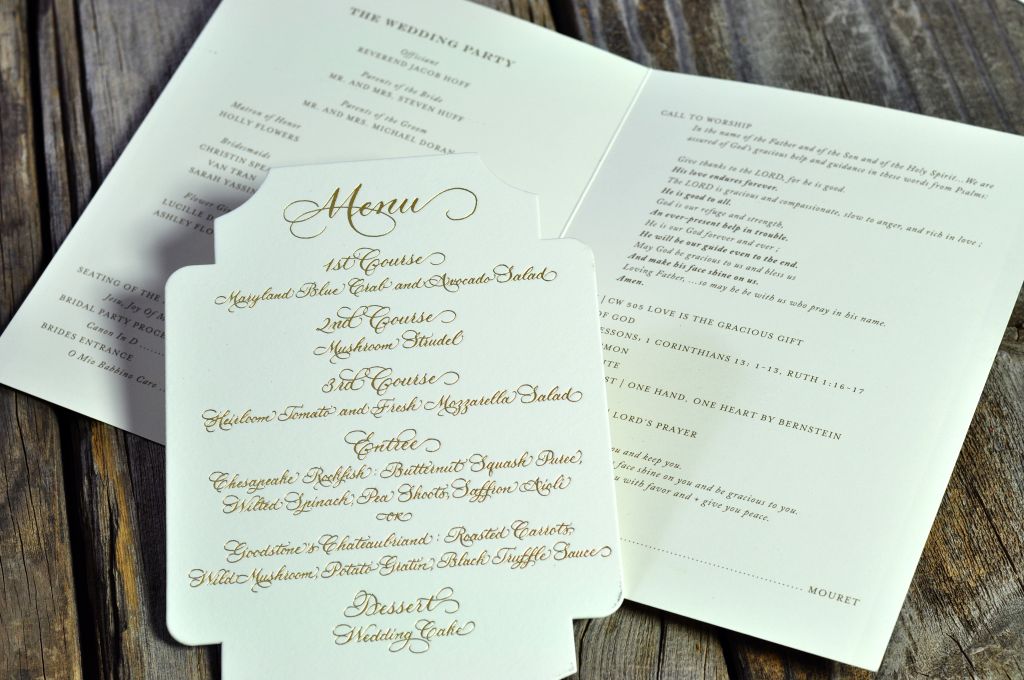 THE WEDDING PARTY
Officiant
REVEREND JACOB HOFF
Parents of the Bride
MR. AND MRS. STEVEN HUFF
Parents of the Groom
MR. AND MRS. MICHAEL DORAN
Matron of Honor
HOLLY FLOWERS
Bridesmaids
CHRISTIN SPEA
VAN TRAN
SARAH YASSIN
Flower Gi
LUCILLE D
ASHLEY FLO
SEATING OF THE
Jesu, Joy Of M
BRIDAL PARTY PROCE
Canon In D ......
BRIDES ENTRANCE
O Mio Babbino Caro ..
Menu
1st Course
Maryland Blue Crab and Avocado Salad
2nd Course
Mushroom Strudel
3rd Course
Heirloom Tomato and Fresh Mozzarella Salad
Entrée
Chesapeake Rockfish: Butternut Squash Puree,
Wilted Spinach, Pea Shoots, Saffron Aioli
or
Goodstone's Chateaubriand: Roasted Carrots,
Wild Mushroom, Potato Gratin, Black Truffle Sauce
Dessert
Wedding Cake
CALL TO WORSHIP
In the name of the Father and of the Son and of the Holy Spirit...We are
assured of God's gracious help and guidance in these words from Psalms:
Give thanks to the LORD, for he is good.
His love endures forever.
The LORD is gracious and compassionate, slow to anger, and rich in love ;
He is good to all.
God is our refuge and strength,
An ever-present help in trouble.
He is our God forever and ever ;
He will be our guide even to the end.
May God be gracious to us and bless us
And make his face shine on us.
Loving Father, ....so may be be with us who pray in his name.
Amen.
| CW 505 LOVE IS THE GRACIOUS GIFT
OF GOD
ESSONS, 1 CORINTHIANS 13: 1-13, RUTH 1:16-17
MON
ITE
ST | ONE HAND, ONE HEART BY BERNSTEIN
LORD'S PRAYER
you and keep you.
face shine on you and be gracious to you.
ou with favor and + give you peace.
MOURET